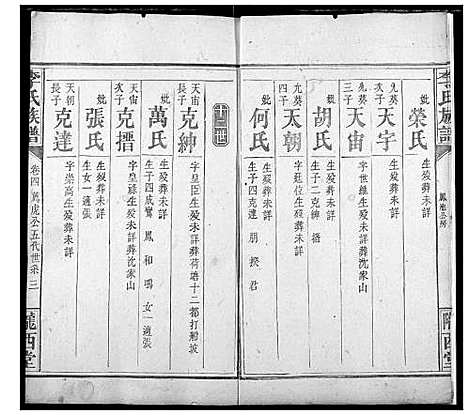 李氏族譜
鳳池公房
隴西堂
妣 榮氏 生歿葬未詳
九葵次子 天字 生歿葬未詳
九葵三子 天宙 字世維生歿未詳葬沈家山
妣 胡氏 生歿葬未詳
生子二克紳 搢
九葵四子 天朝 字廷位生歿葬未詳
妣 何氏 生歿葬未詳
生子四克達 朋 揆 君
十三世
天宙長子 克紳 字皇臣生歿未詳葬荷塘十二都打鄉坡
妣 萬氏 生歿葬未詳
生子四成鸞 鳳 和 鳴 女一適張
天宙次子 克搢 字皇祿生歿未詳葬沈家山
妣 張氏 生歿葬未詳
生女一適張
天朝長子 克達 字崇高生歿葬未詳
李氏族譜
卷四 萬虎公五代世系 三
隴西堂